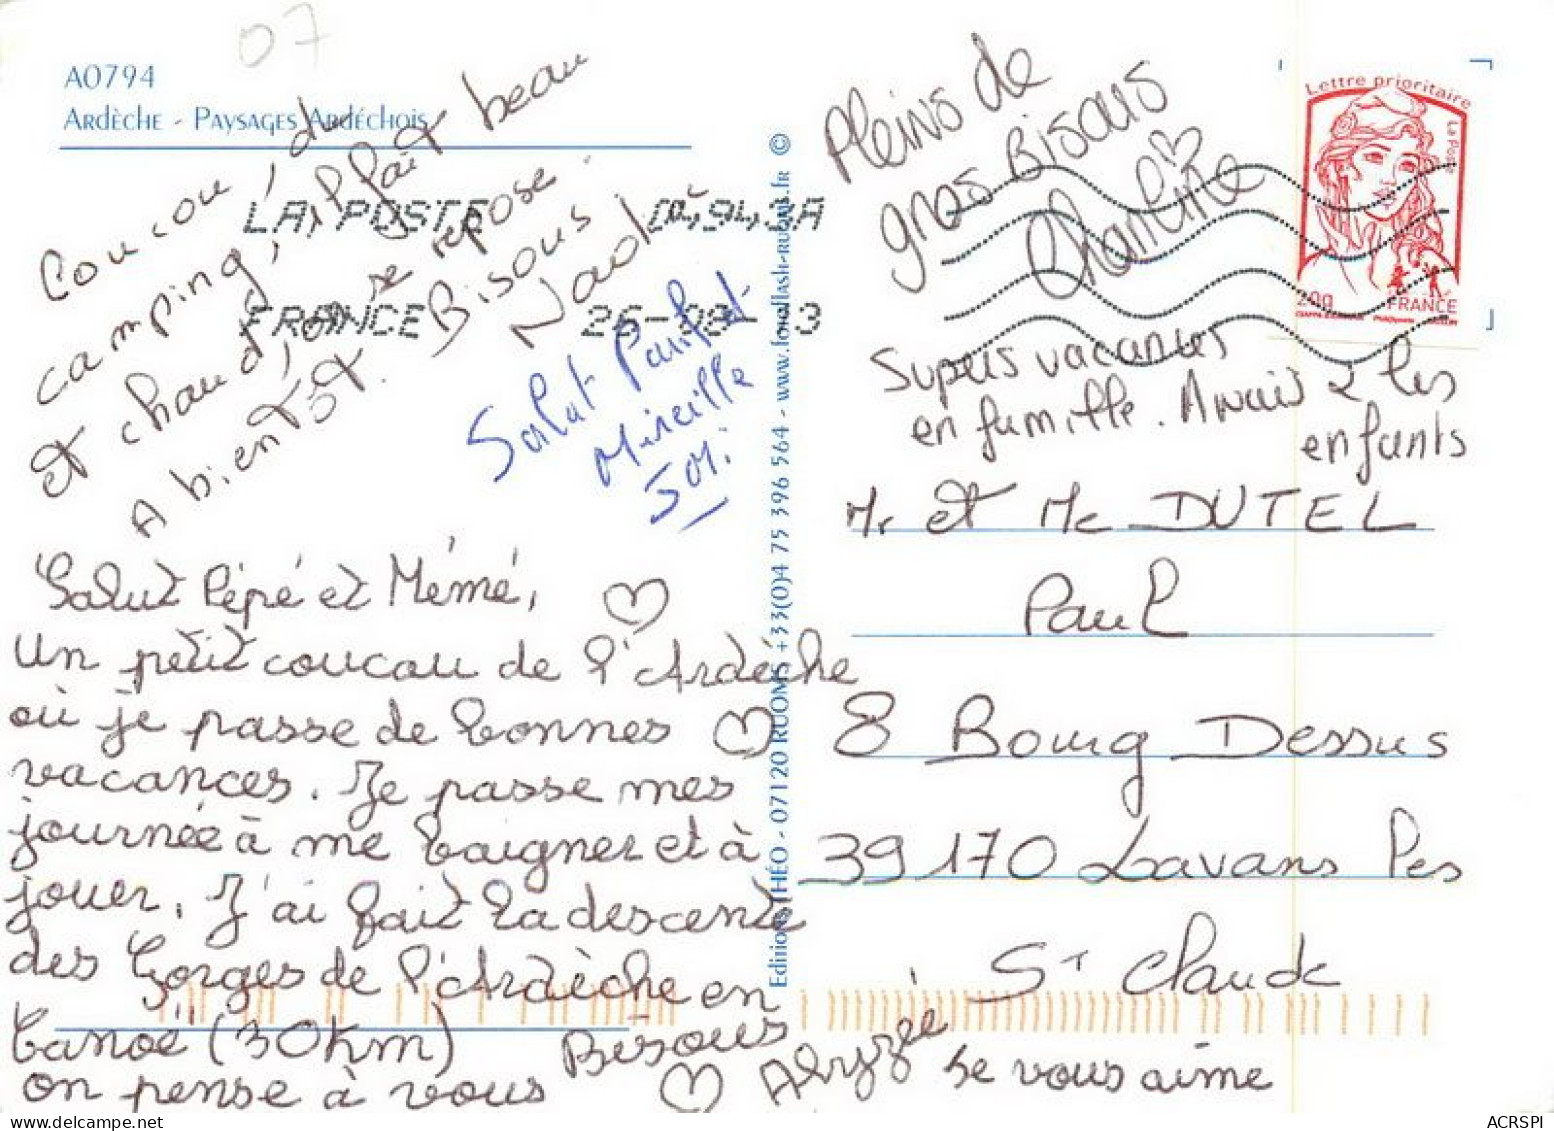 07
A0794
Ardèche - Paysages Ardéchois
Coucou, du
camping, il fait beau
et chaud, on se repose.
A bientôt. Bisous.
LA POSTE
04943A
FRANCE
26-08-13
Salut Paul et
Mireille
Salut Pépé et Mémé,
un petit coucou de l'Ardèche
où je passe de bonnes
vacances. Je passe mes
journée à me baigner et à
jouer. J'ai fait la descente
des Gorges de l'Ardèche en
Canoë (30Km) Bisous
on pense à vous
je vous aime
Editions THÉO - 07120 RUOMS +33(0)4 75 396 564 - www.fotoflash-ruoms.fr ©
Pleins de
gros Bisous
Charline
Lettre prioritaire
La Poste
20g
FRANCE
Supers vacances
en famille. Anaïs & les
enfants
Mr et Me DUTEL
Paul
8 Bourg Dessus
39170 Lavans les
St Claude
ACRSPI